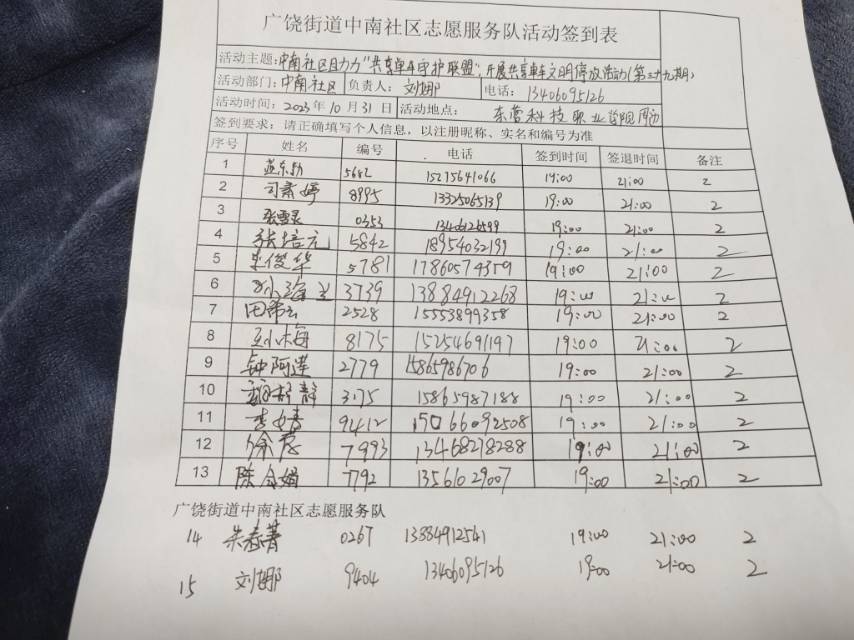 广饶街道中南社区志愿服务队活动签到表
活动主题:中南社区助力“共享单车守护联盟”,开展共享单车文明停放活动(第三十九期)
活动部门:中南社区 负责人:刘娜 电话:13406095126
活动时间:2023年10月31日 活动地点:东营科技职业学院周边
签到要求:请正确填写个人信息,以注册昵称、实名和编号为准
序号 姓名 编号 电话 签到时间 签退时间 备注
1 5682 15275641066 19:00 21:00 2
2 司素婷 8995 13325065139 19:00 21:00 2
3 0353 19:00 21:00 2
4 张培元 5842 18954032199 19:00 21:00 2
5 宋俊华 5781 17860574359 19:00 21:00 2
6 孙海兰 3739 13884912268 19:00 21:00 2
7 2528 15553899358 19:00 21:00 2
8 王小梅 8175 15254691197 19:00 21:00 2
9 钟阿莲 2779 15865986706 19:00 21:00 2
10 3175 15865987188 19:00 21:00 2
11 9412 15066092508 19:00 21:00 2
12 7993 13468278288 19:00 21:00 2
13 陈令娟 7792 13561029007 19:00 21:00 2
广饶街道中南社区志愿服务队
14 朱春菁 0267 13884912541 19:00 21:00 2
15 刘娜 9404 13406095126 19:00 21:00 2